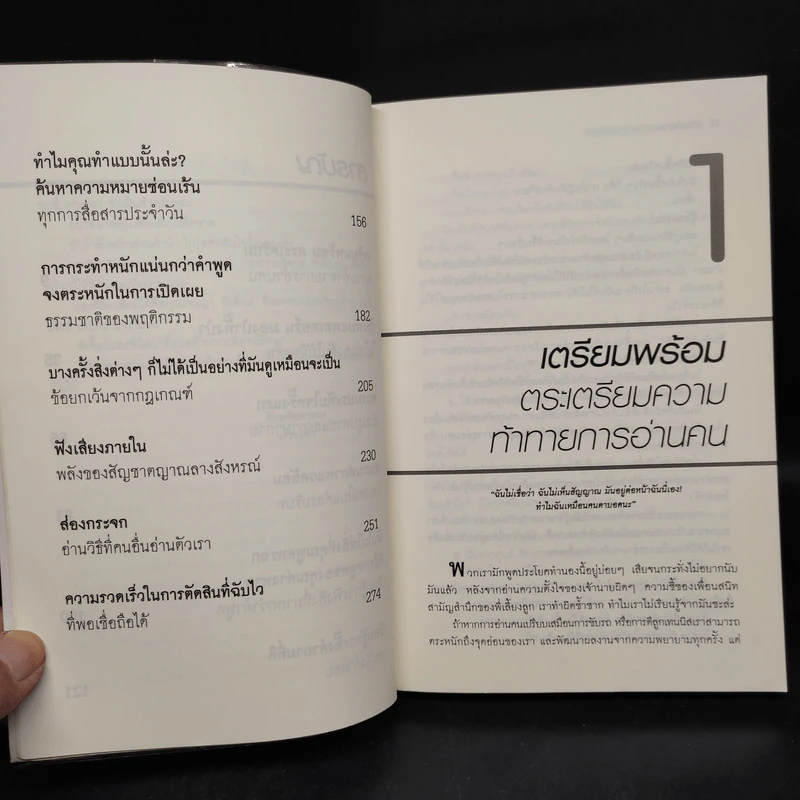 ทำไมคุณทำแบบนั้นล่ะ?
ค้นหาความหมายซ่อนเร้น
ทุกการสื่อสารประจำวัน 156
การกระทำหนักแน่นกว่าคำพูด
จงตระหนักในการเปิดเผย
ธรรมชาติของพฤติกรรม 182
บางครั้งสิ่งต่างๆ ก็ไม่ได้เป็นอย่างที่มันดูเหมือนจะเป็น
ข้อยกเว้นจากกฎเกณฑ์ 205
ฟังเสียงภายใน
พลังของสัญชาตญาณลางสังหรณ์ 230
ส่องกระจก
อ่านวิธีที่คนอื่นอ่านตัวเรา 251
ความรวดเร็วในการตัดสินที่ฉับไว
ที่พอเชื่อถือได้ 274
1
เตรียมพร้อม
ตระเตรียมความ
ท้าทายการอ่านคน
"ฉันไม่เชื่อว่า ฉันไม่เห็นสัญญาณ มันอยู่ต่อหน้าฉันนี่เอง!
ทำไมฉันเหมือนคนตาบอดนะ"
พวกเรามักพูดประโยคทำนองนี้อยู่บ่อยๆ เสียจนกระทั่งไม่อยากนับ
มันแล้ว หลังจากอ่านความตั้งใจของเจ้านายผิดๆ ความซื่อของเพื่อนสนิท
สามัญสำนึกของพี่เลี้ยงลูก เราทำผิดซ้ำซาก ทำไมเราไม่เรียนรู้จากมันซะล่ะ
ถ้าหากการอ่านคนเปรียบเสมือนการขับรถ หรือการตีลูกเทนนิสเราสามารถ
ตระหนักถึงจุดอ่อนของเรา และพัฒนาผลงานจากความพยายามทุกครั้ง แต่